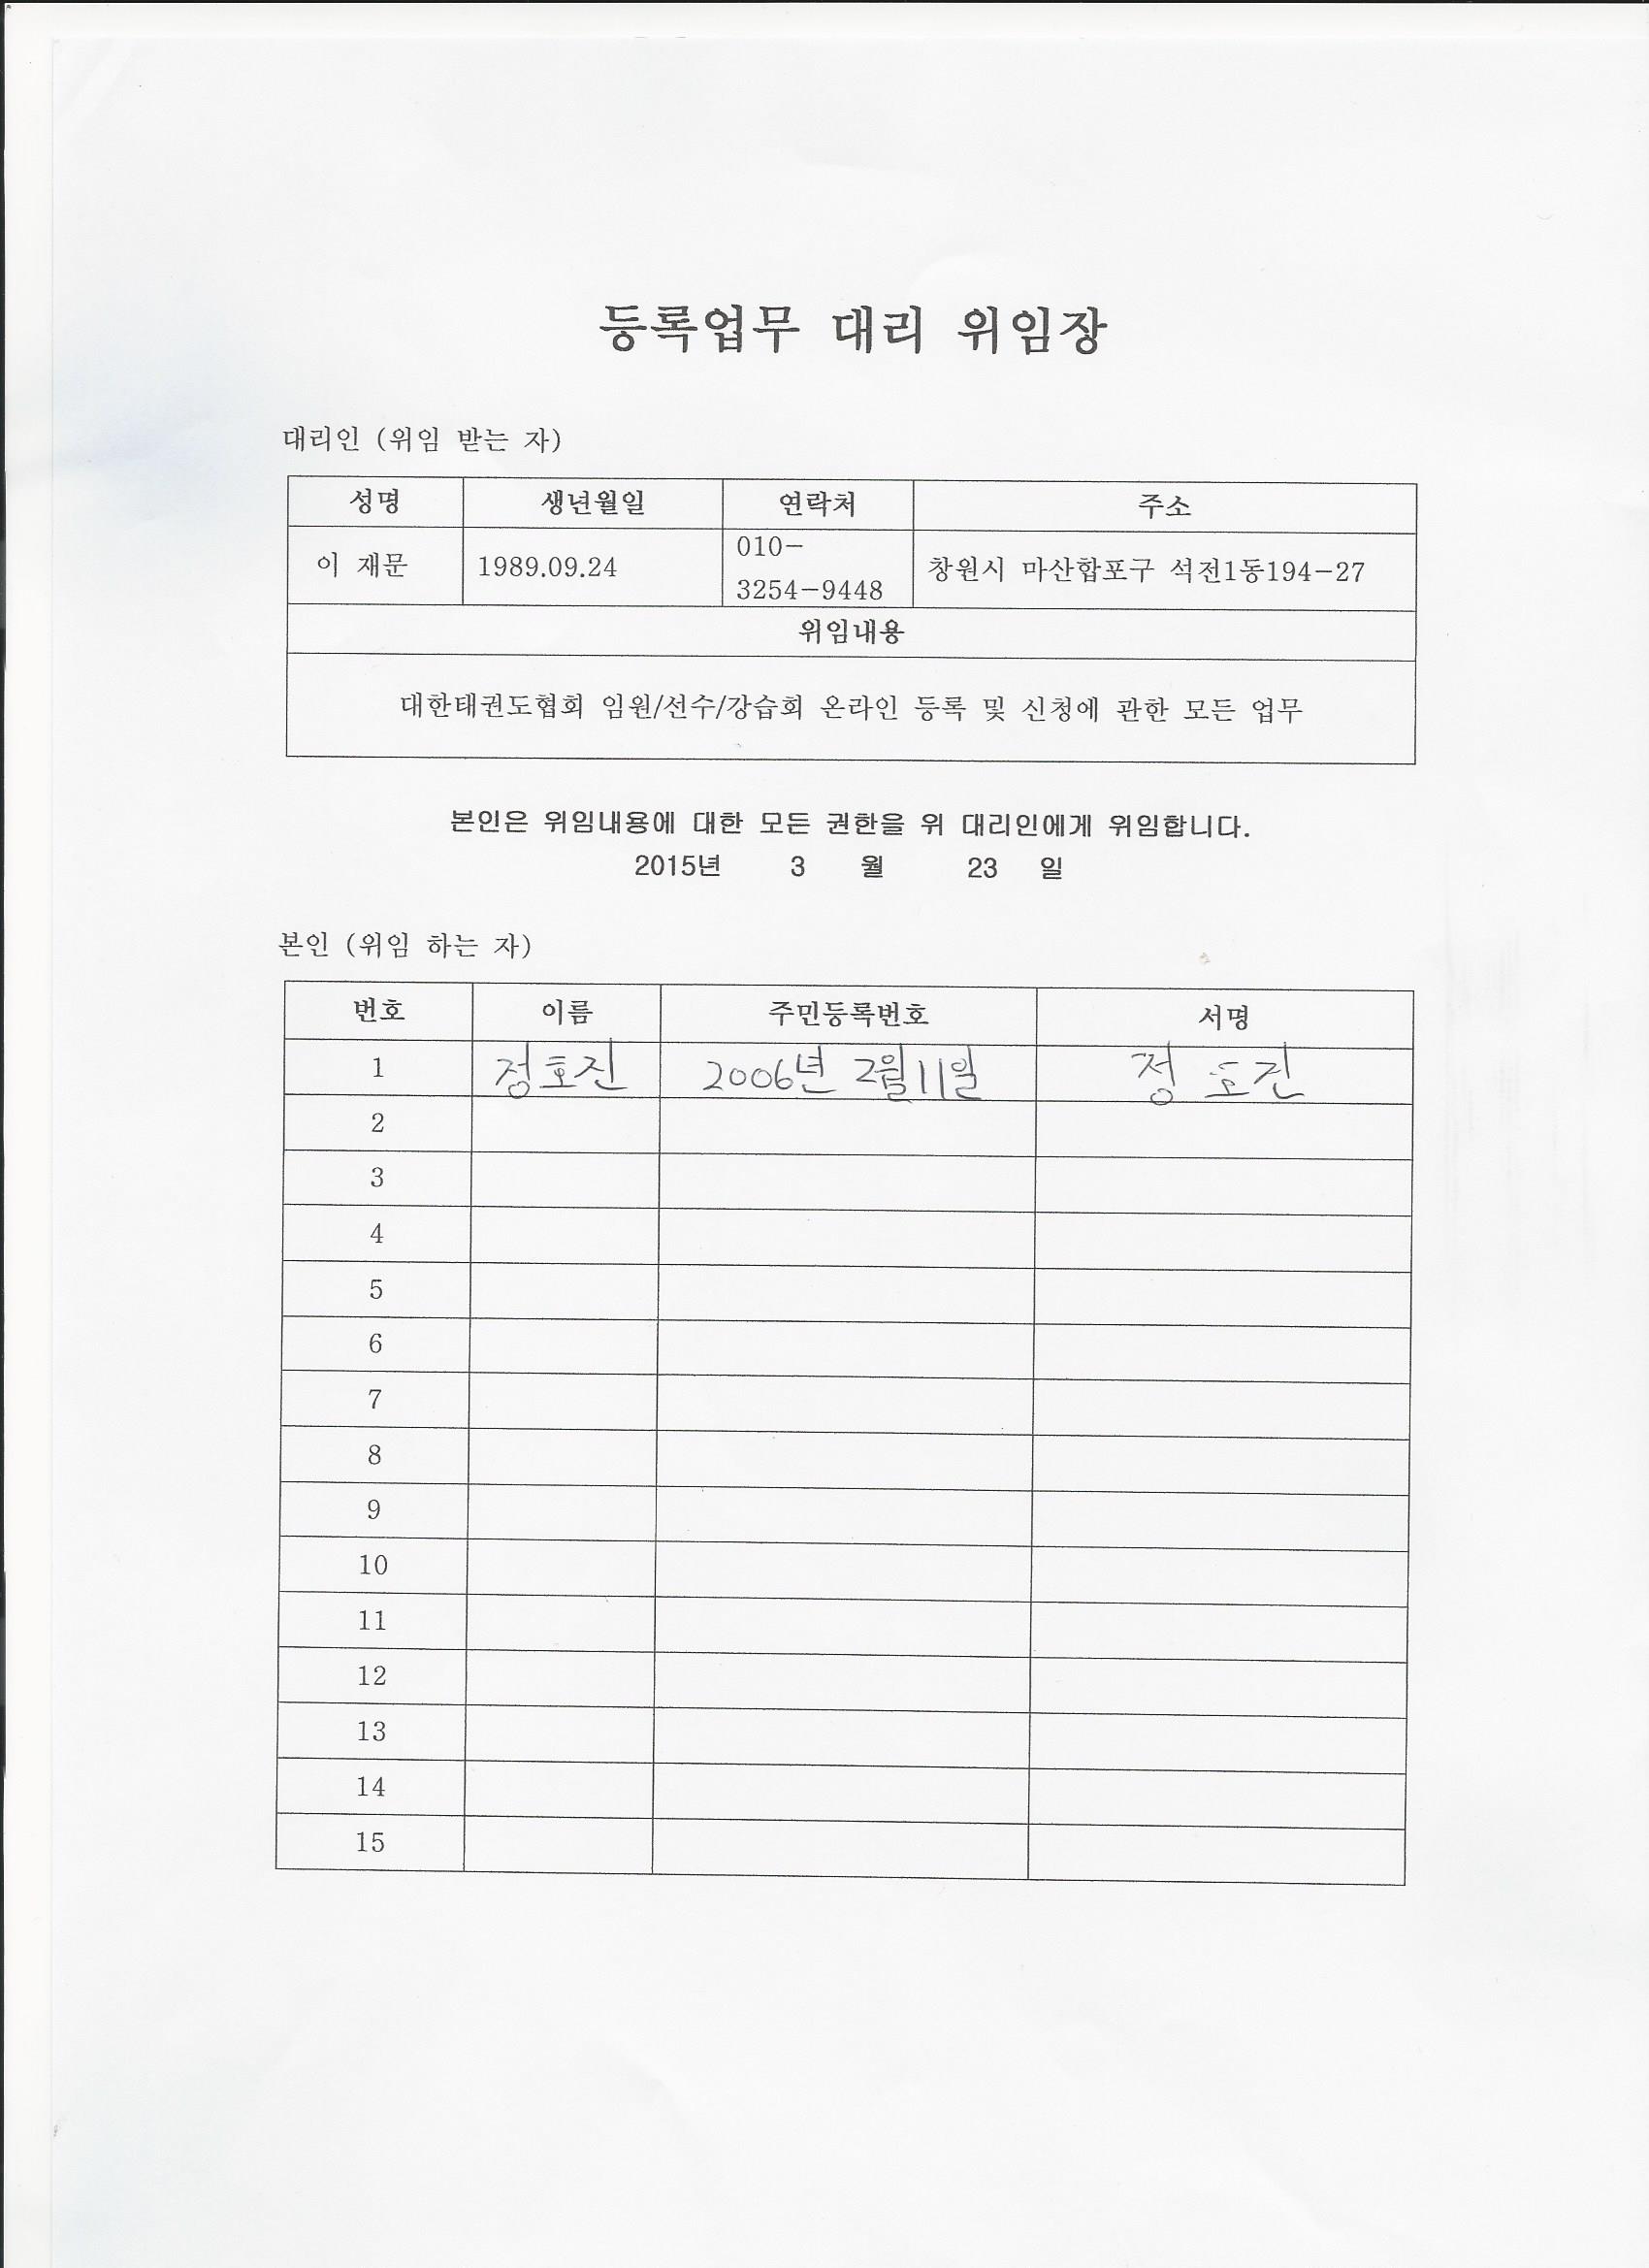 등록업무 대리 위임장
대리인 (위임 받는 자)
성명 생년월일 연락처 주소
이 재문 1989.09.24 010-3254-9448 창원시 마산합포구 석전1동194-27
위임내용
대한태권도협회 임원/선수/강습회 온라인 등록 및 신청에 관한 모든 업무
본인은 위임내용에 대한 모든 권한을 위 대리인에게 위임합니다.
2015년 3 월 23 일
본인 (위임 하는 자)
번호 이름 주민등록번호 서명
1 정호진 2006년 2월 11일 정호진
2
3
4
5
6
7
8
9
10
11
12
13
14
15